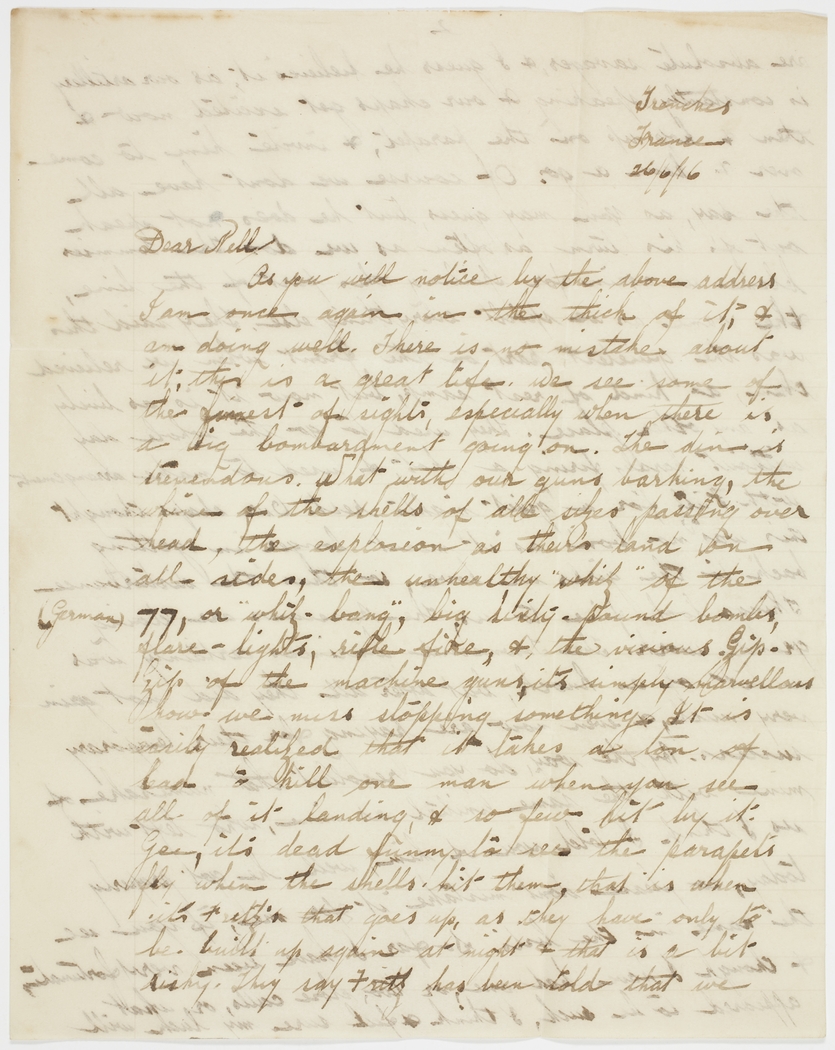 Trenches
France
26/6/16
Dear Rell
As you will notice by the above address
I am once again in the thick of it, &
am doing well. There is no mistake about
it, this is a great life. We see some of
the finest of sights, especially when there is
a big bombardment going on. The din is
tremendous. What with our guns barking, the
whine of the shells of all sizes passing over
head, the explosion as theirs land on
all sides, the unhealthy "whiz" of the
(German) 77, or "whiz-bang", big sixty-pound bombs,
flare-lights, rifle fire, &, the vicious Zip-
Zip of the machine guns, its simply marvellous
how we miss stopping something. It is
easily realized that it takes a ton of
lead to kill one man when you see
all of it landing, & so few hit by it.
Gee, its dead funny to see the parapets
fly when the shells hit them, that is when
its Fritz's that goes up, as they have only to
be built up again at night & that is a bit
risky. They say Fritz has been told that we